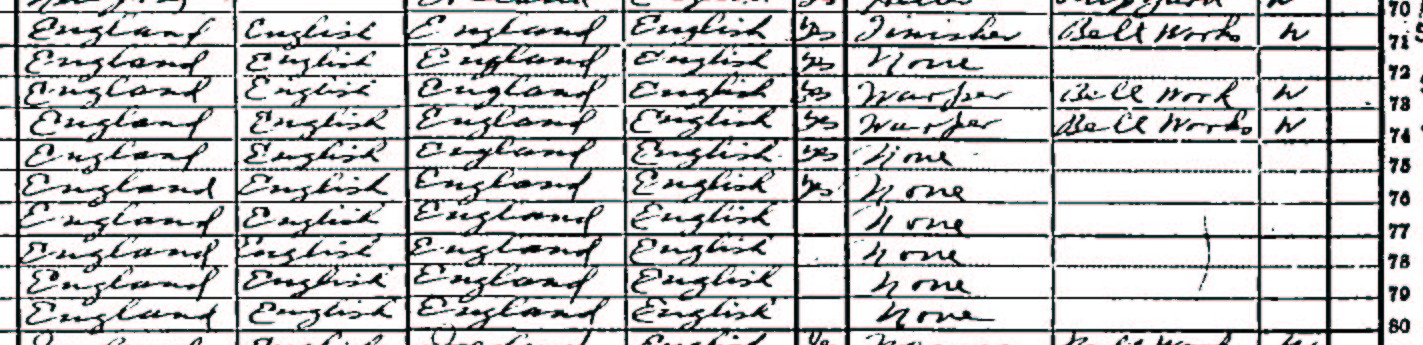 70
England English England English Yes Finisher Belt Works W 71
England English England English Yes None 72
England English England English Yes Warper Belt Work W 73
England English England English Yes Warper Belt Works W 74
England English England English Yes None 75
England English England English Yes None 76
England English England English None 77
England English England English None 78
England English England English None 79
England English England English None 80